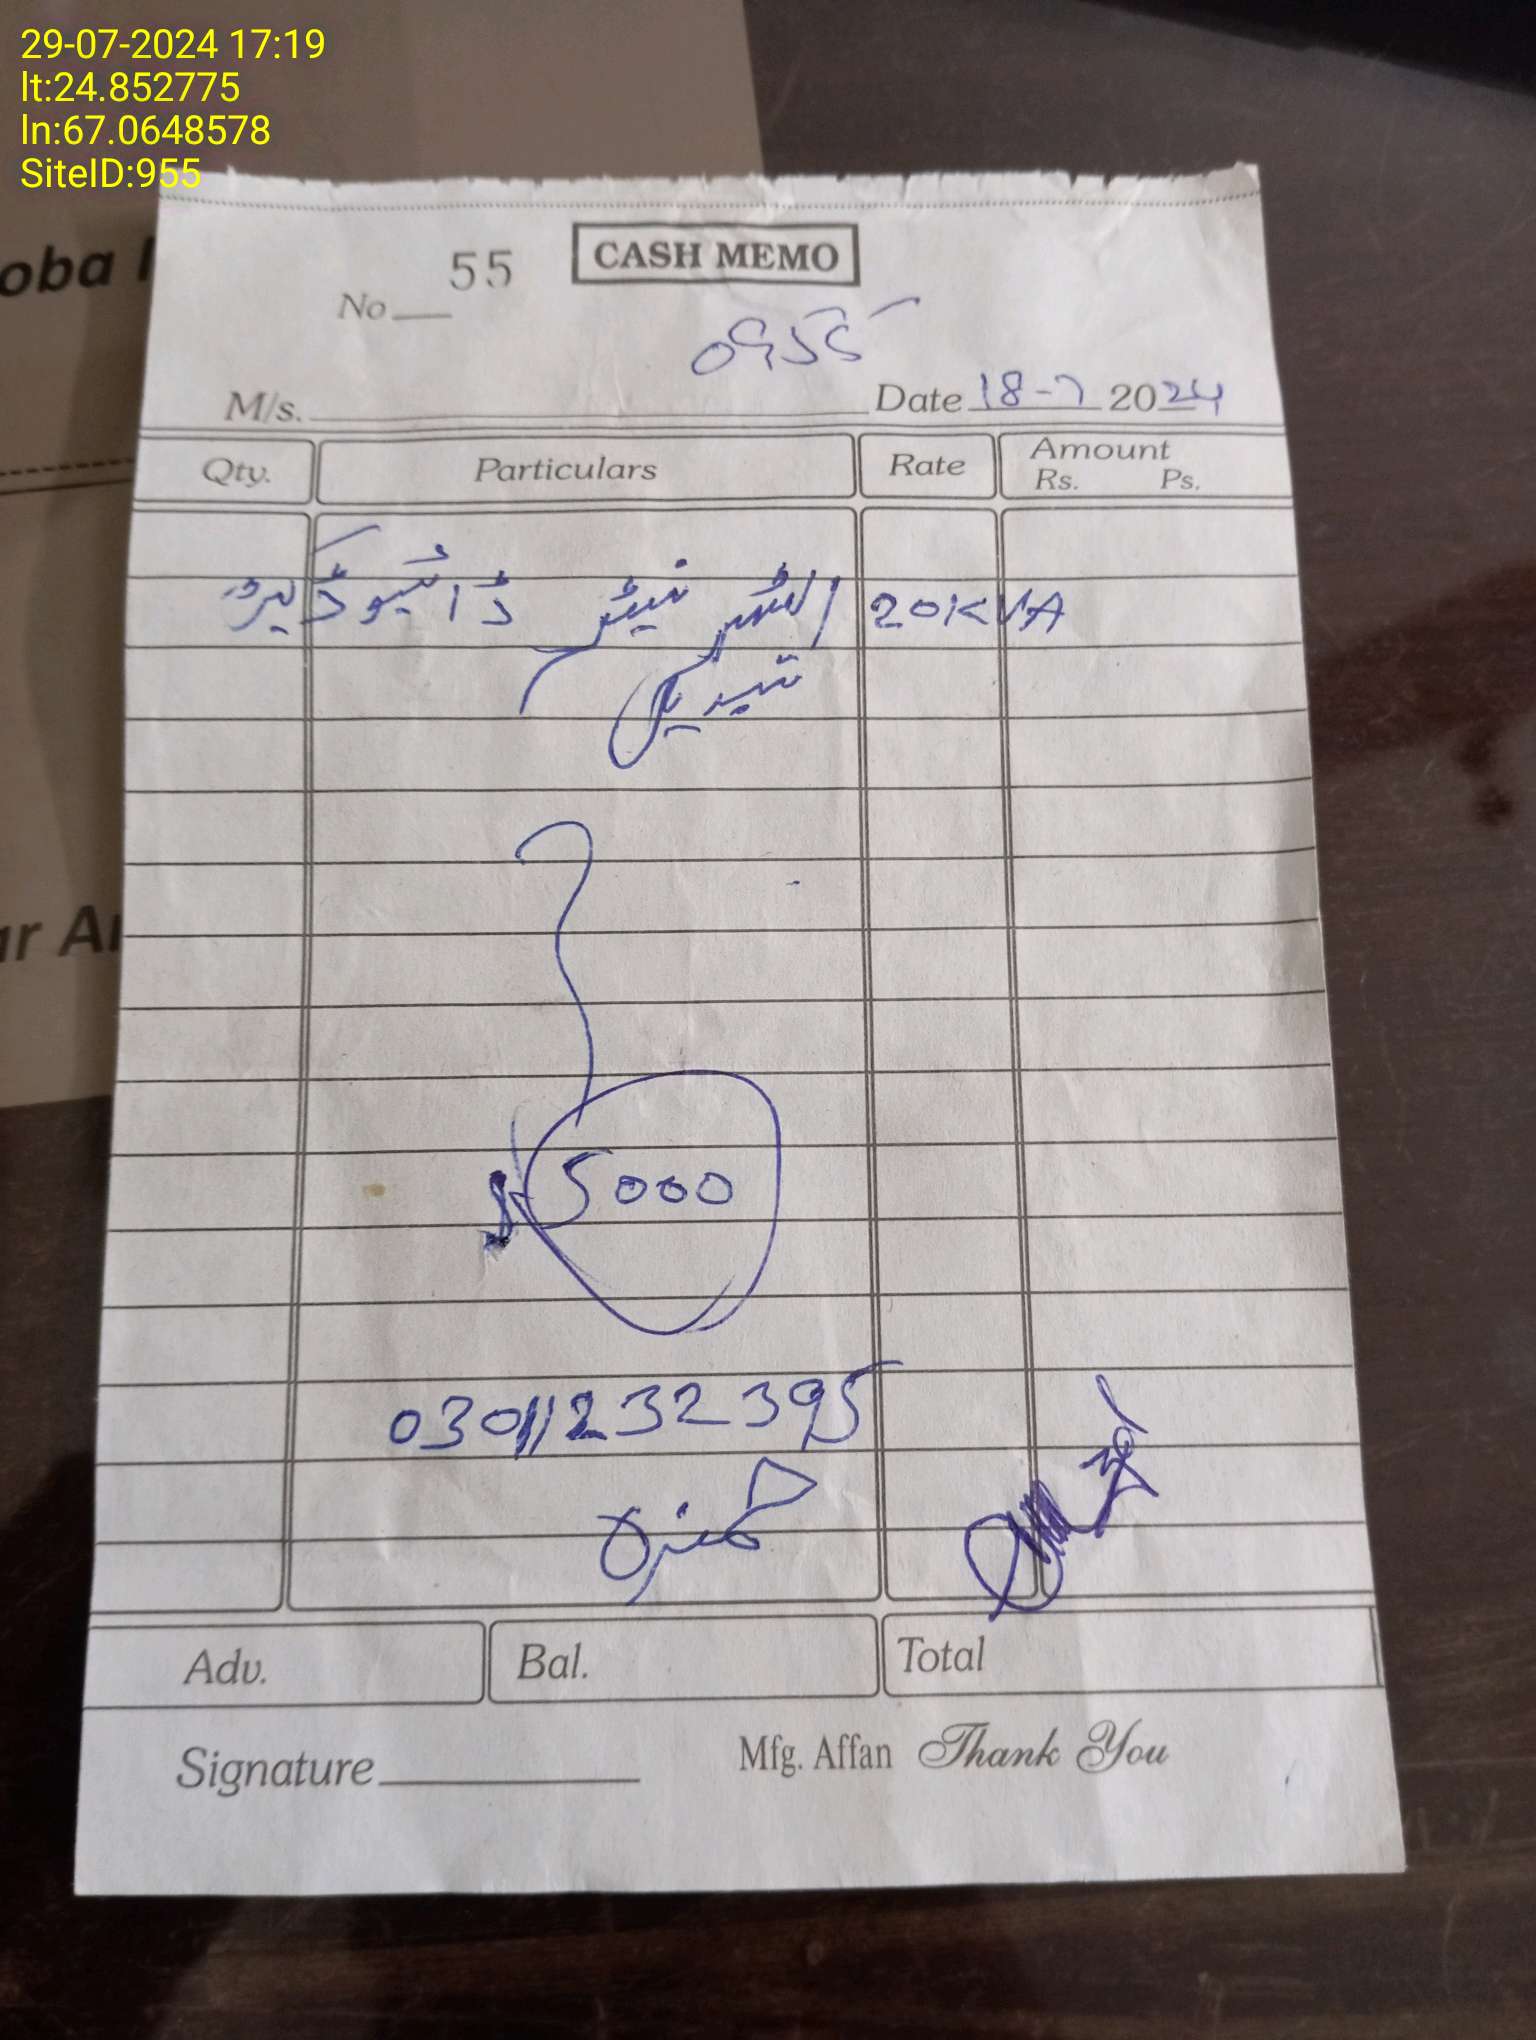 29-07-2024 17:19
lt:24.852775
ln:67.0648578
SiteID:955
oba
CASH MEMO
No 55
0955
M/s. Date 18-7 2024
Qty. Particulars Rate Amount
Rs. Ps.
20KVA الٹرنیٹر ڈائیوڈ
تبدیل
5000
ar
03011232395
Adv. Bal. Total
Signature Mfg. Affan Thank You